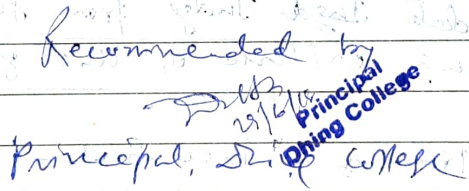 Recommended by
Principal
Dhing College
Principal, Dhing College